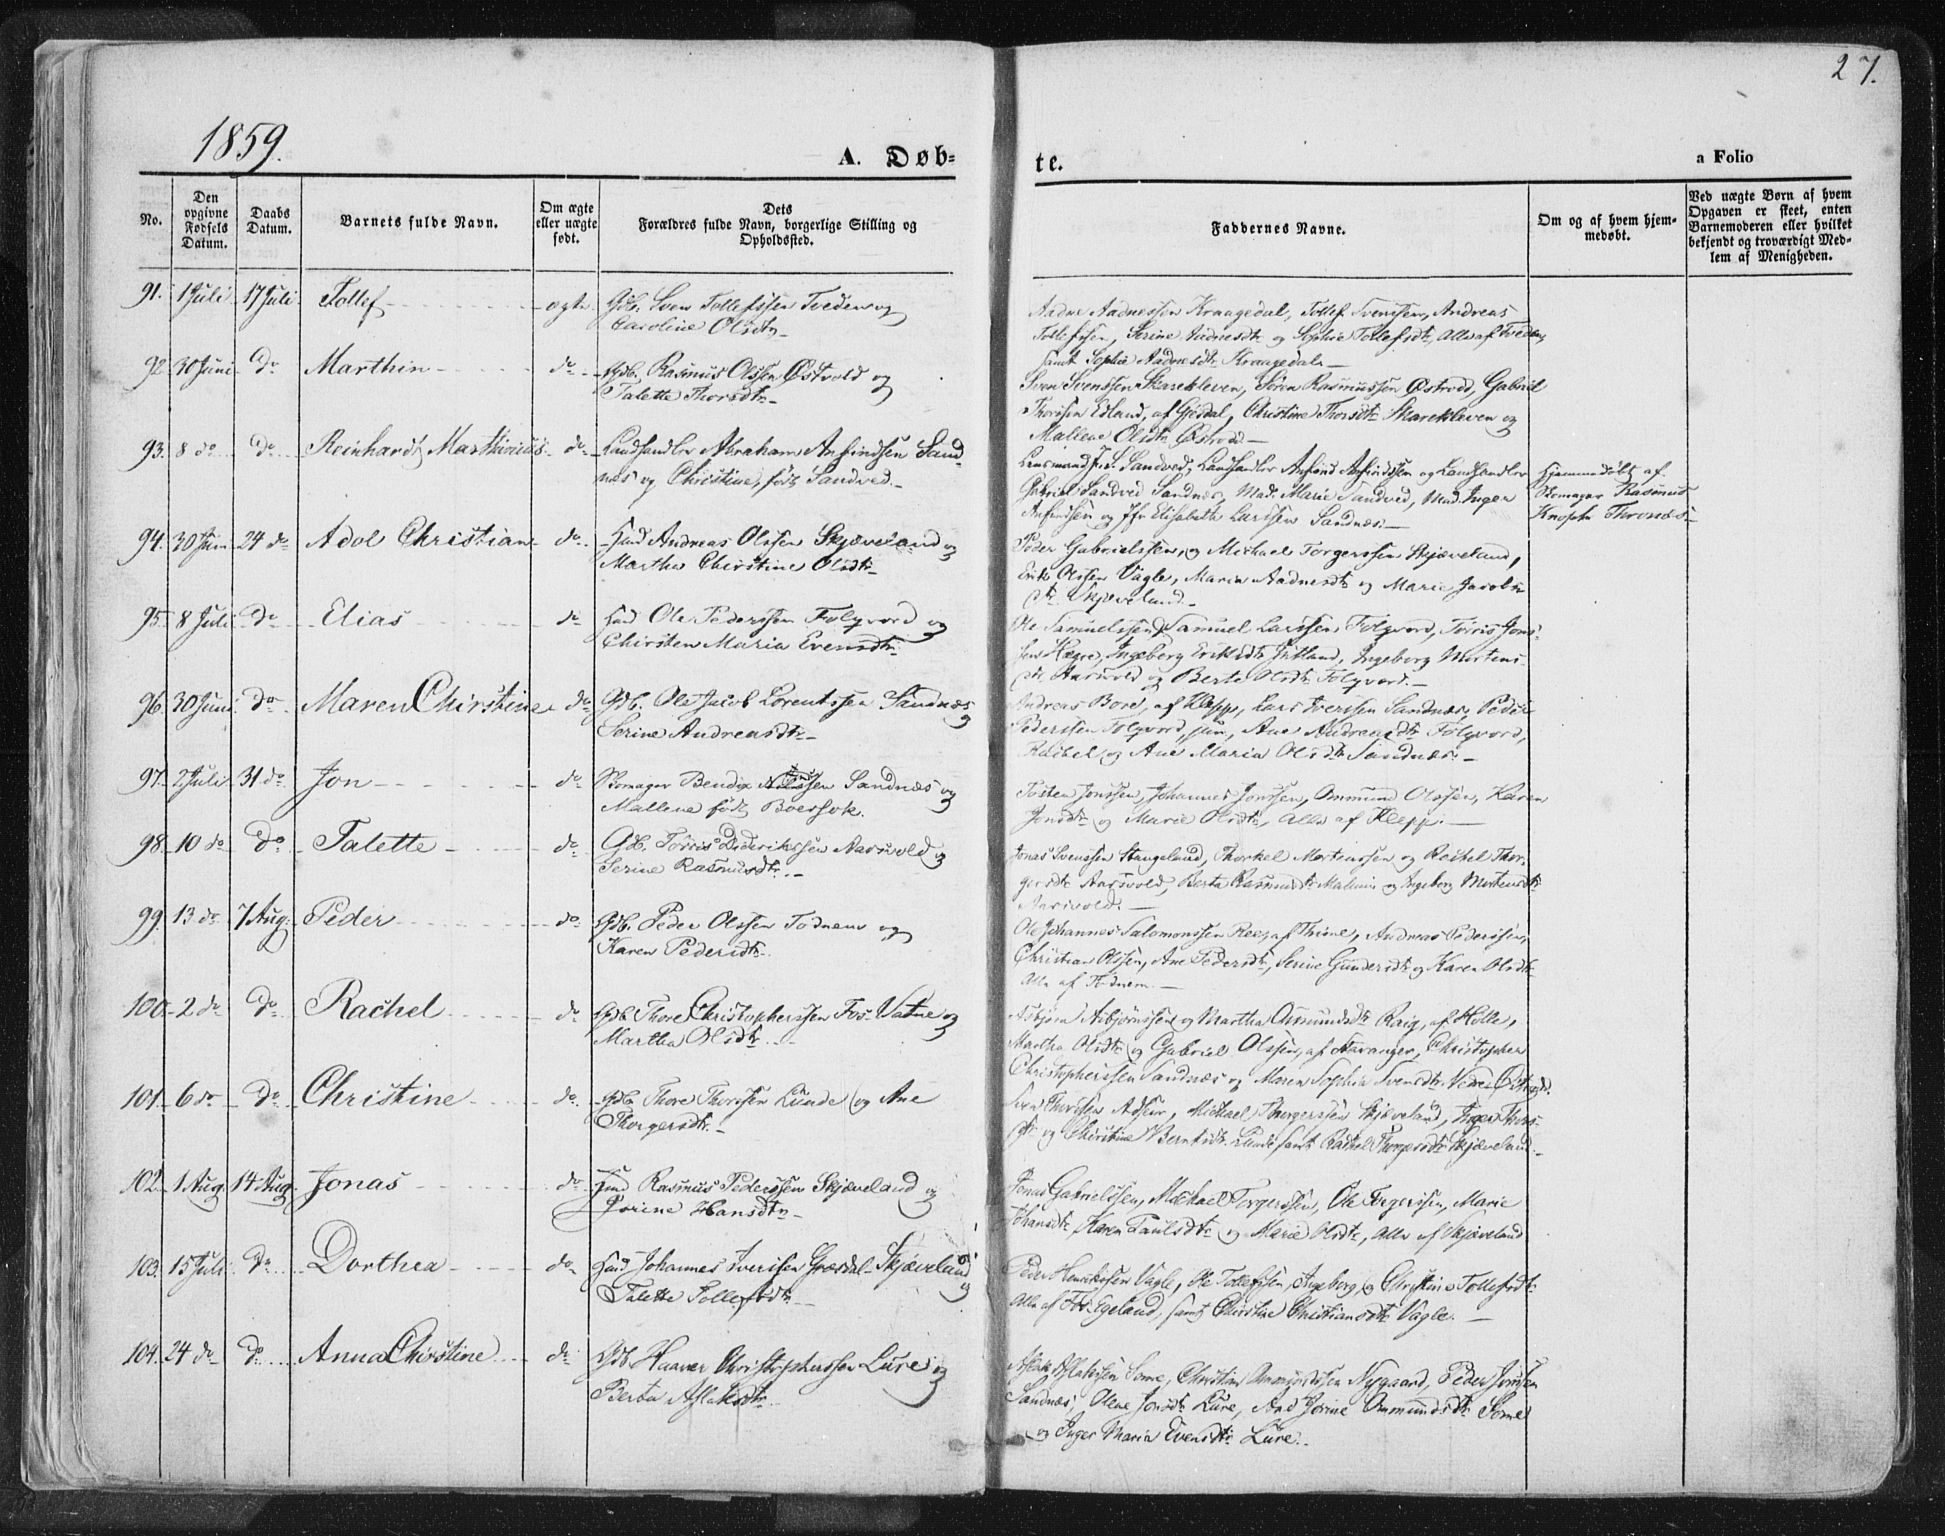 27.
1859.
A. Døb=
te.
a Folio
No.
Den opgivne Fødsels Datum.
Daabs Datum.
Barnets fulde Navn.
Om ægte eller uægte født.
Dets Forældres fulde Navn, borgerlige Stilling og Opholdssted.
Faddernes Navne.
Om og af hvem hjemmedøbt.
Ved uægte Børn af hvem Opgaven er skeet, enten Barnemoderen eller hvilket bekjendt og troværdigt Medlem af Menigheden.
91. 1 Juli 17 Juli Tollef ægte Gdb. Sven Tollefssen Tveden og
Caroline Olsdtr
Aadne Aadnessen Kraagedal, Tollef Svenssen, Andreas
Tollefssen, Serine Aadnesdtr og Sophie Tollefsdtr, Alle af Tveden,
samt Sophie Aadnesdtr Kraagedal
92. 30 Juni do Marthin do Gdb. Rasmus Olssen Østvold og
Talette Thorsdtr
Sven Svenssen Skarekleven, Søren Rasmussen Østvold, Gabriel
Thorssen Edland, af Gjesdal, Christine Thorsdtr Skarekleven og
Mallene Olsdtr Østvold
93. 8 do do Reinhardt Marthinius do Landhandler Abraham Anfindsen Sand-
næs og Christine, født Sandved
Lensmand Sandved, Landhandler Anfind Anfindssen og Landhandler
Gabriel Sandved Sandnæs, Mad. Marie Sandved, Mad. Inger
Anfindsen og Jfr Elisabeth Larssen Sandnæs
Hjemmedøbt af
Skomager Rasmus
Knophn Thronæs
94. 30 Juni 24 do Adol Christian do Husmd Andreas Olssen Skjæveland og
Martha Chirstine Olsdtr
Peder Gabrielssen og Michael Torgerssen Skjæveland,
Erik Olssen Vagle, Maria Aadnesdtr og Marie Jacobs-
dtr Skjæveland
95. 8 Juli do Elias do Husmd Ole Pederssen Folqvord og
Chirsten Maria Evensdtr
Ole Samuelssen, Samuel Larssen Folqvord, Tørris Jons-
sen Høgre, Ingeborg Eriksdtr Jutland, Ingeborg Mortens-
dtr Aarsvold og Berte Olsdtr Folqvord
96. 30 Juni do Maren Chirstine do Gdb. Ole Jacob Lorentssen Sandnæs og
Serine Andreasdtr
Andreas Bore, af Klepp, Lars Iverssen Sandnæs, Peder
Pederssen Folqvord, jun, Ane Andreasdtr Folqvord,
Rachel og Ane Maria Olsdtr Sandnæs
97. 2 Juli 31 do Jon do Skomager Bendix Sandnæs og
Mallene født Boessok.
Tosten Jonssen, Johannes Jonssen, Ommund Olssen, Karen
Jonsdtr og Marie Olsdtr, Alle af Klepp.
98. 10 do do Talette do Gdb. Tørris Dideriksen Aarsvold og
Serine Rasmusdtr
Jonas Svenssen Stangeland, Thorkel Mortenssen og Rachel Thor-
gersdtr Aarsvold, Berta Rasmusdtr Malmin og Ingeborg Mortensdtr
Aarsvold
99. 13 do 7 Aug. Peder do Gdb. Peder Olssen Todnem og
Karen Pedersdtr
Ole Johannes Salomonssen Ree, af Thime, Andreas Pederssen,
Christian Olssen, Ane Pedersdtr, Serine Gundersdtr og Karen Olsdtr
Alle af Todnem
100. 2 do do Rachel do Gdb Thore Christopherssen Fos-Vatne og
Martha Olsdtr
Asbjørn Asbjørnssen og Martha Osmundsdtr Raig, af Holle,
Martha Olsdtr og Gabriel Olssen, af Stavanger, Christopher
Christopherssen Sandnæs og Maren Sophie Svensdtr
101. 6 do do Christine do Gdb Thore Thorssen Lunde og Ane
Thorgersdtr
Sven Thorssen Adseur, Michael Thorgerssen Skjæveland, Inger Thors-
dtr og Christine Berntsdtr Lunde samt Rachel Thorgersdtr Skjæveland
102. 1 Aug 14 Aug Jonas do Husmd Rasmus Pederssen Skjæveland og
Jorine Hansdtr
Jonas Gabrielssen, Michael Torgerssen, Ole Torgerssen, Marie
Johansdtr Karen Paulsdtr og Marie Olsdtr, Alle af Skjæveland
103. 15 Juli do Dorthea do Husmd Johannes Iverssen Græsdal-Skjæveland og
Talette Tollefsdtr
Peder Vagle, Ole Tollefssen, Ingeborg og Christine Tollefsdtr
Alle af Fos-Egeland, samt Chirstine Christiansdtr Vagle.
104. 24 do do Anna Chirstine do Gdb. Haaver Christopherssen Lure og
Berta Aslaksdtr
Aslak Aslaksen Some, Christian Nygaard, Peder Jonssen
Sandnæs, Olene Jonsdtr Lure, Ane Jorine Ommundsdtr Some
og Inger Maria Evensdtr Lure.